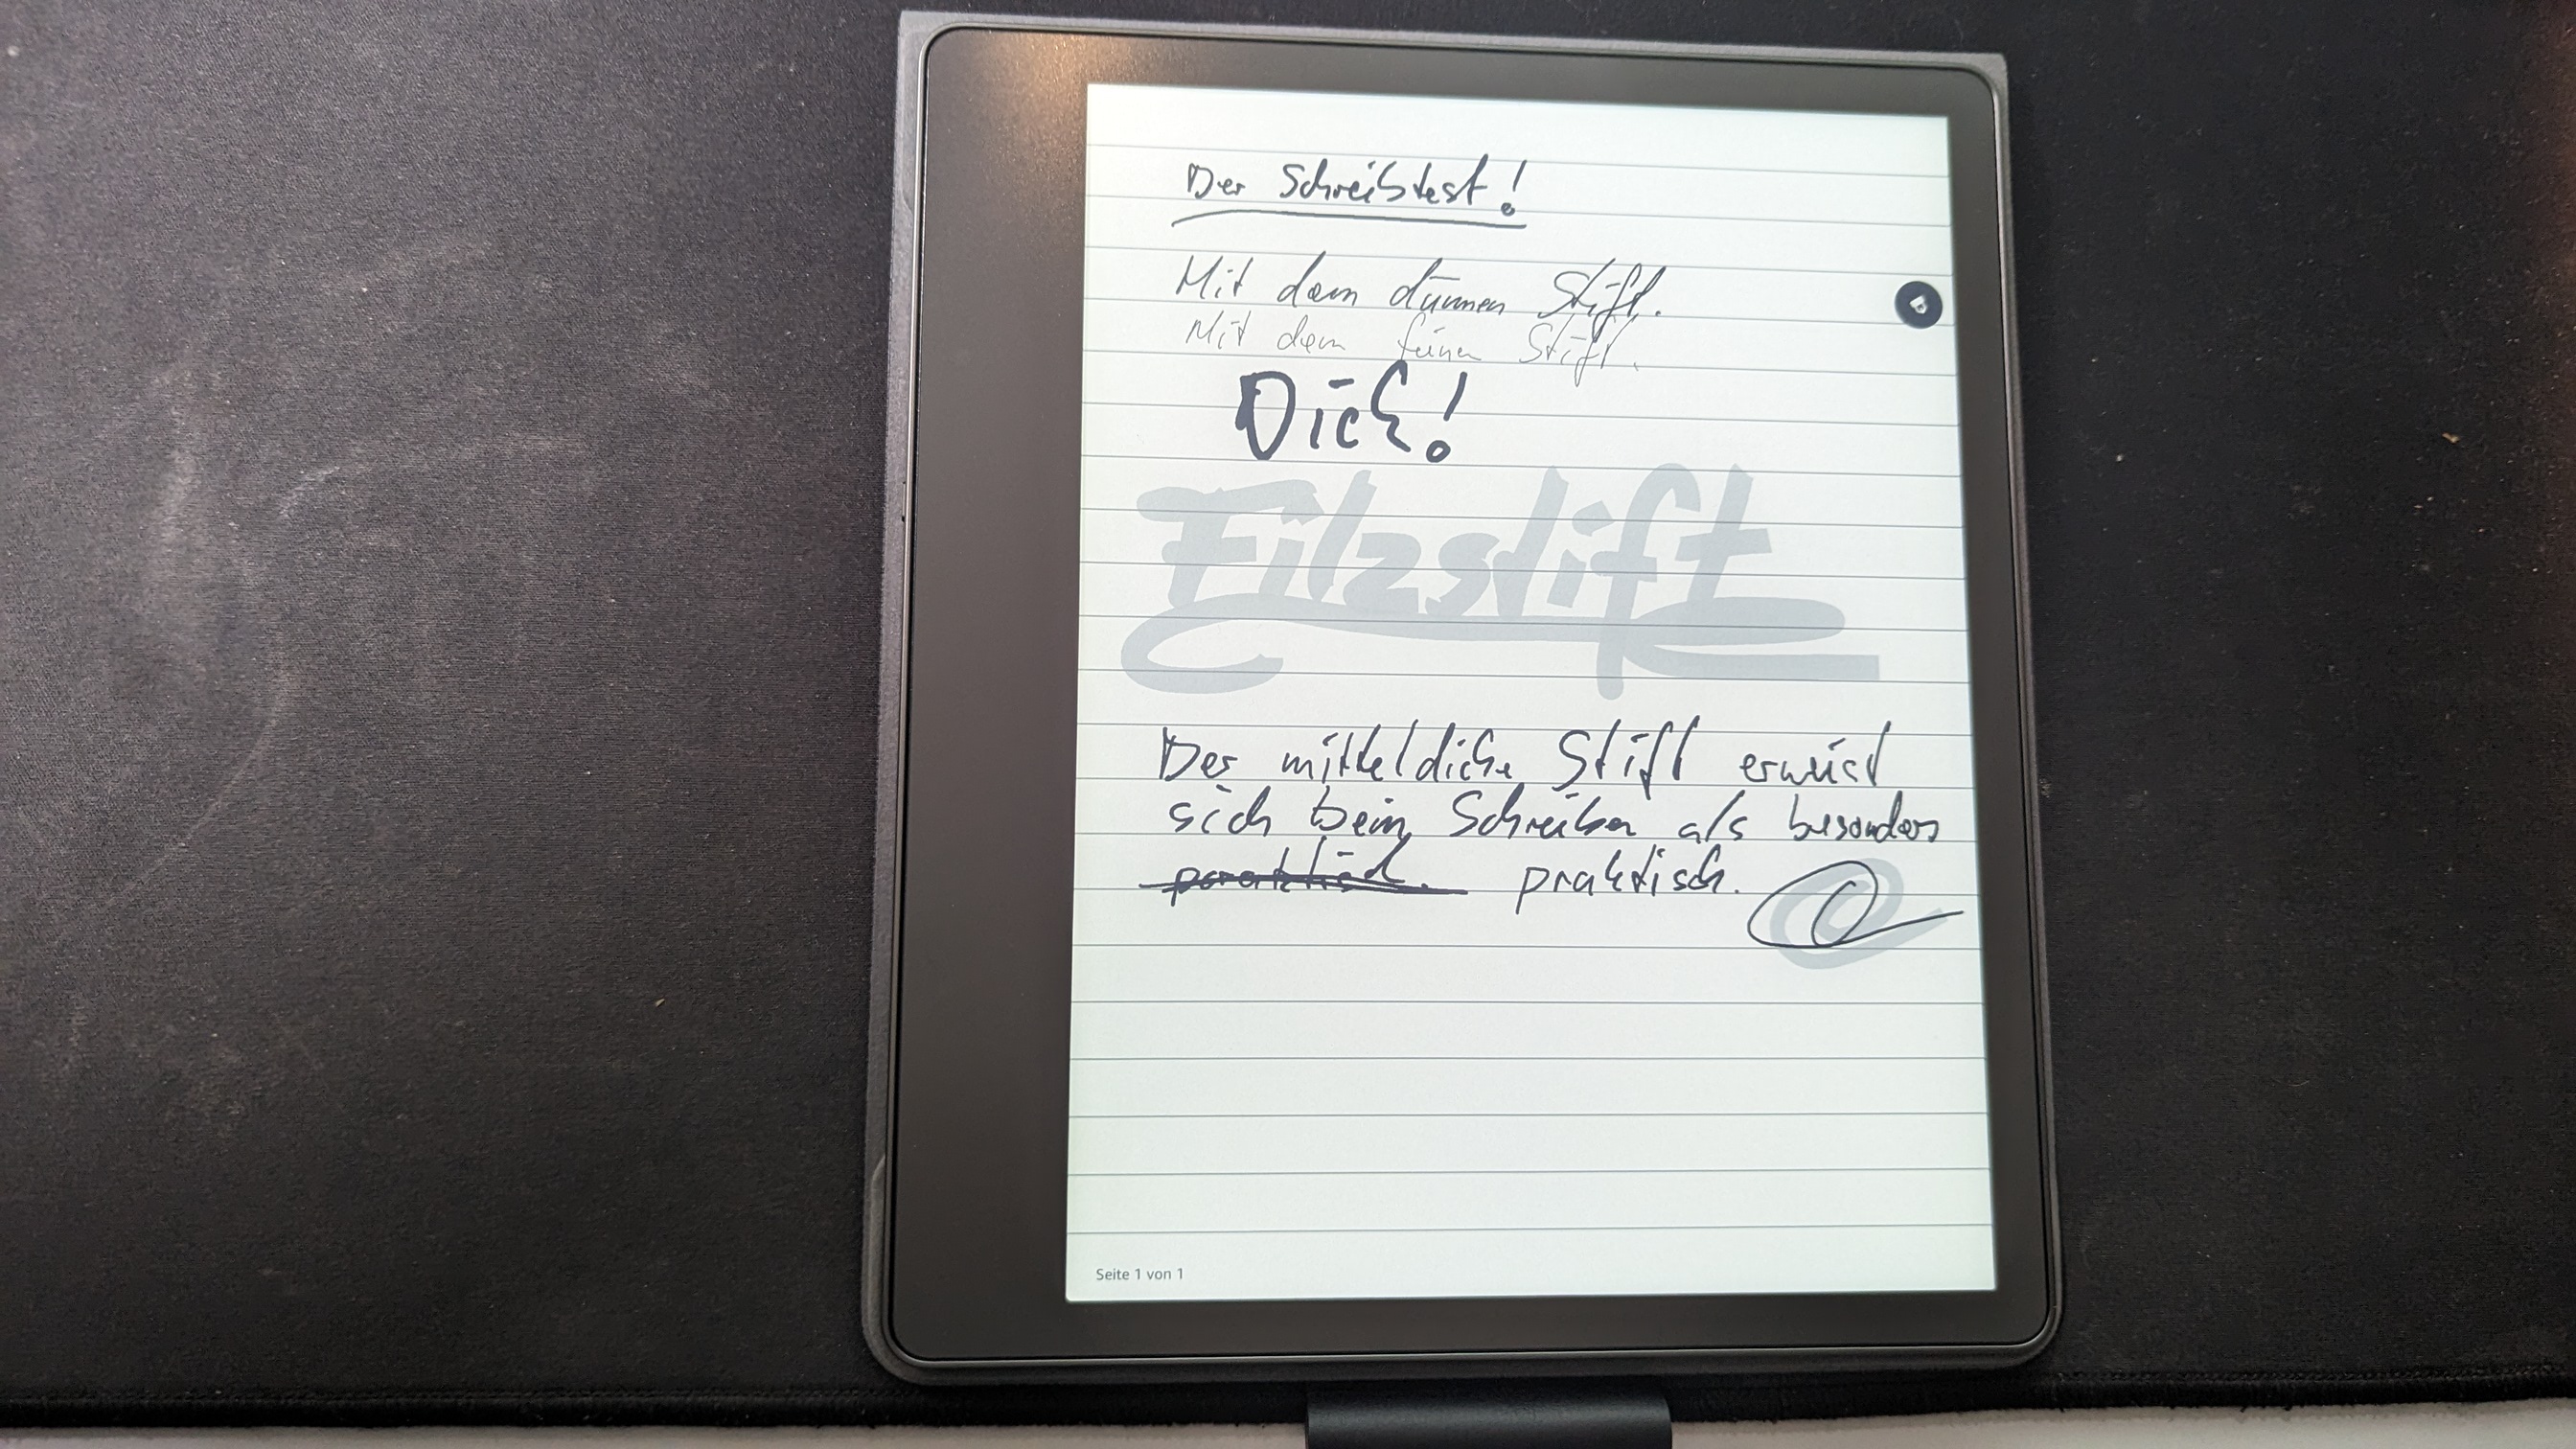 Der Schreibtest!
Mit dem dünnen Stift.
Mit dem feinen Stift.
Dick!
Filzstift
Der mitteldicke Stift erweist
sich beim Schreiben als besonders
praktisch.
Seite 1 von 1